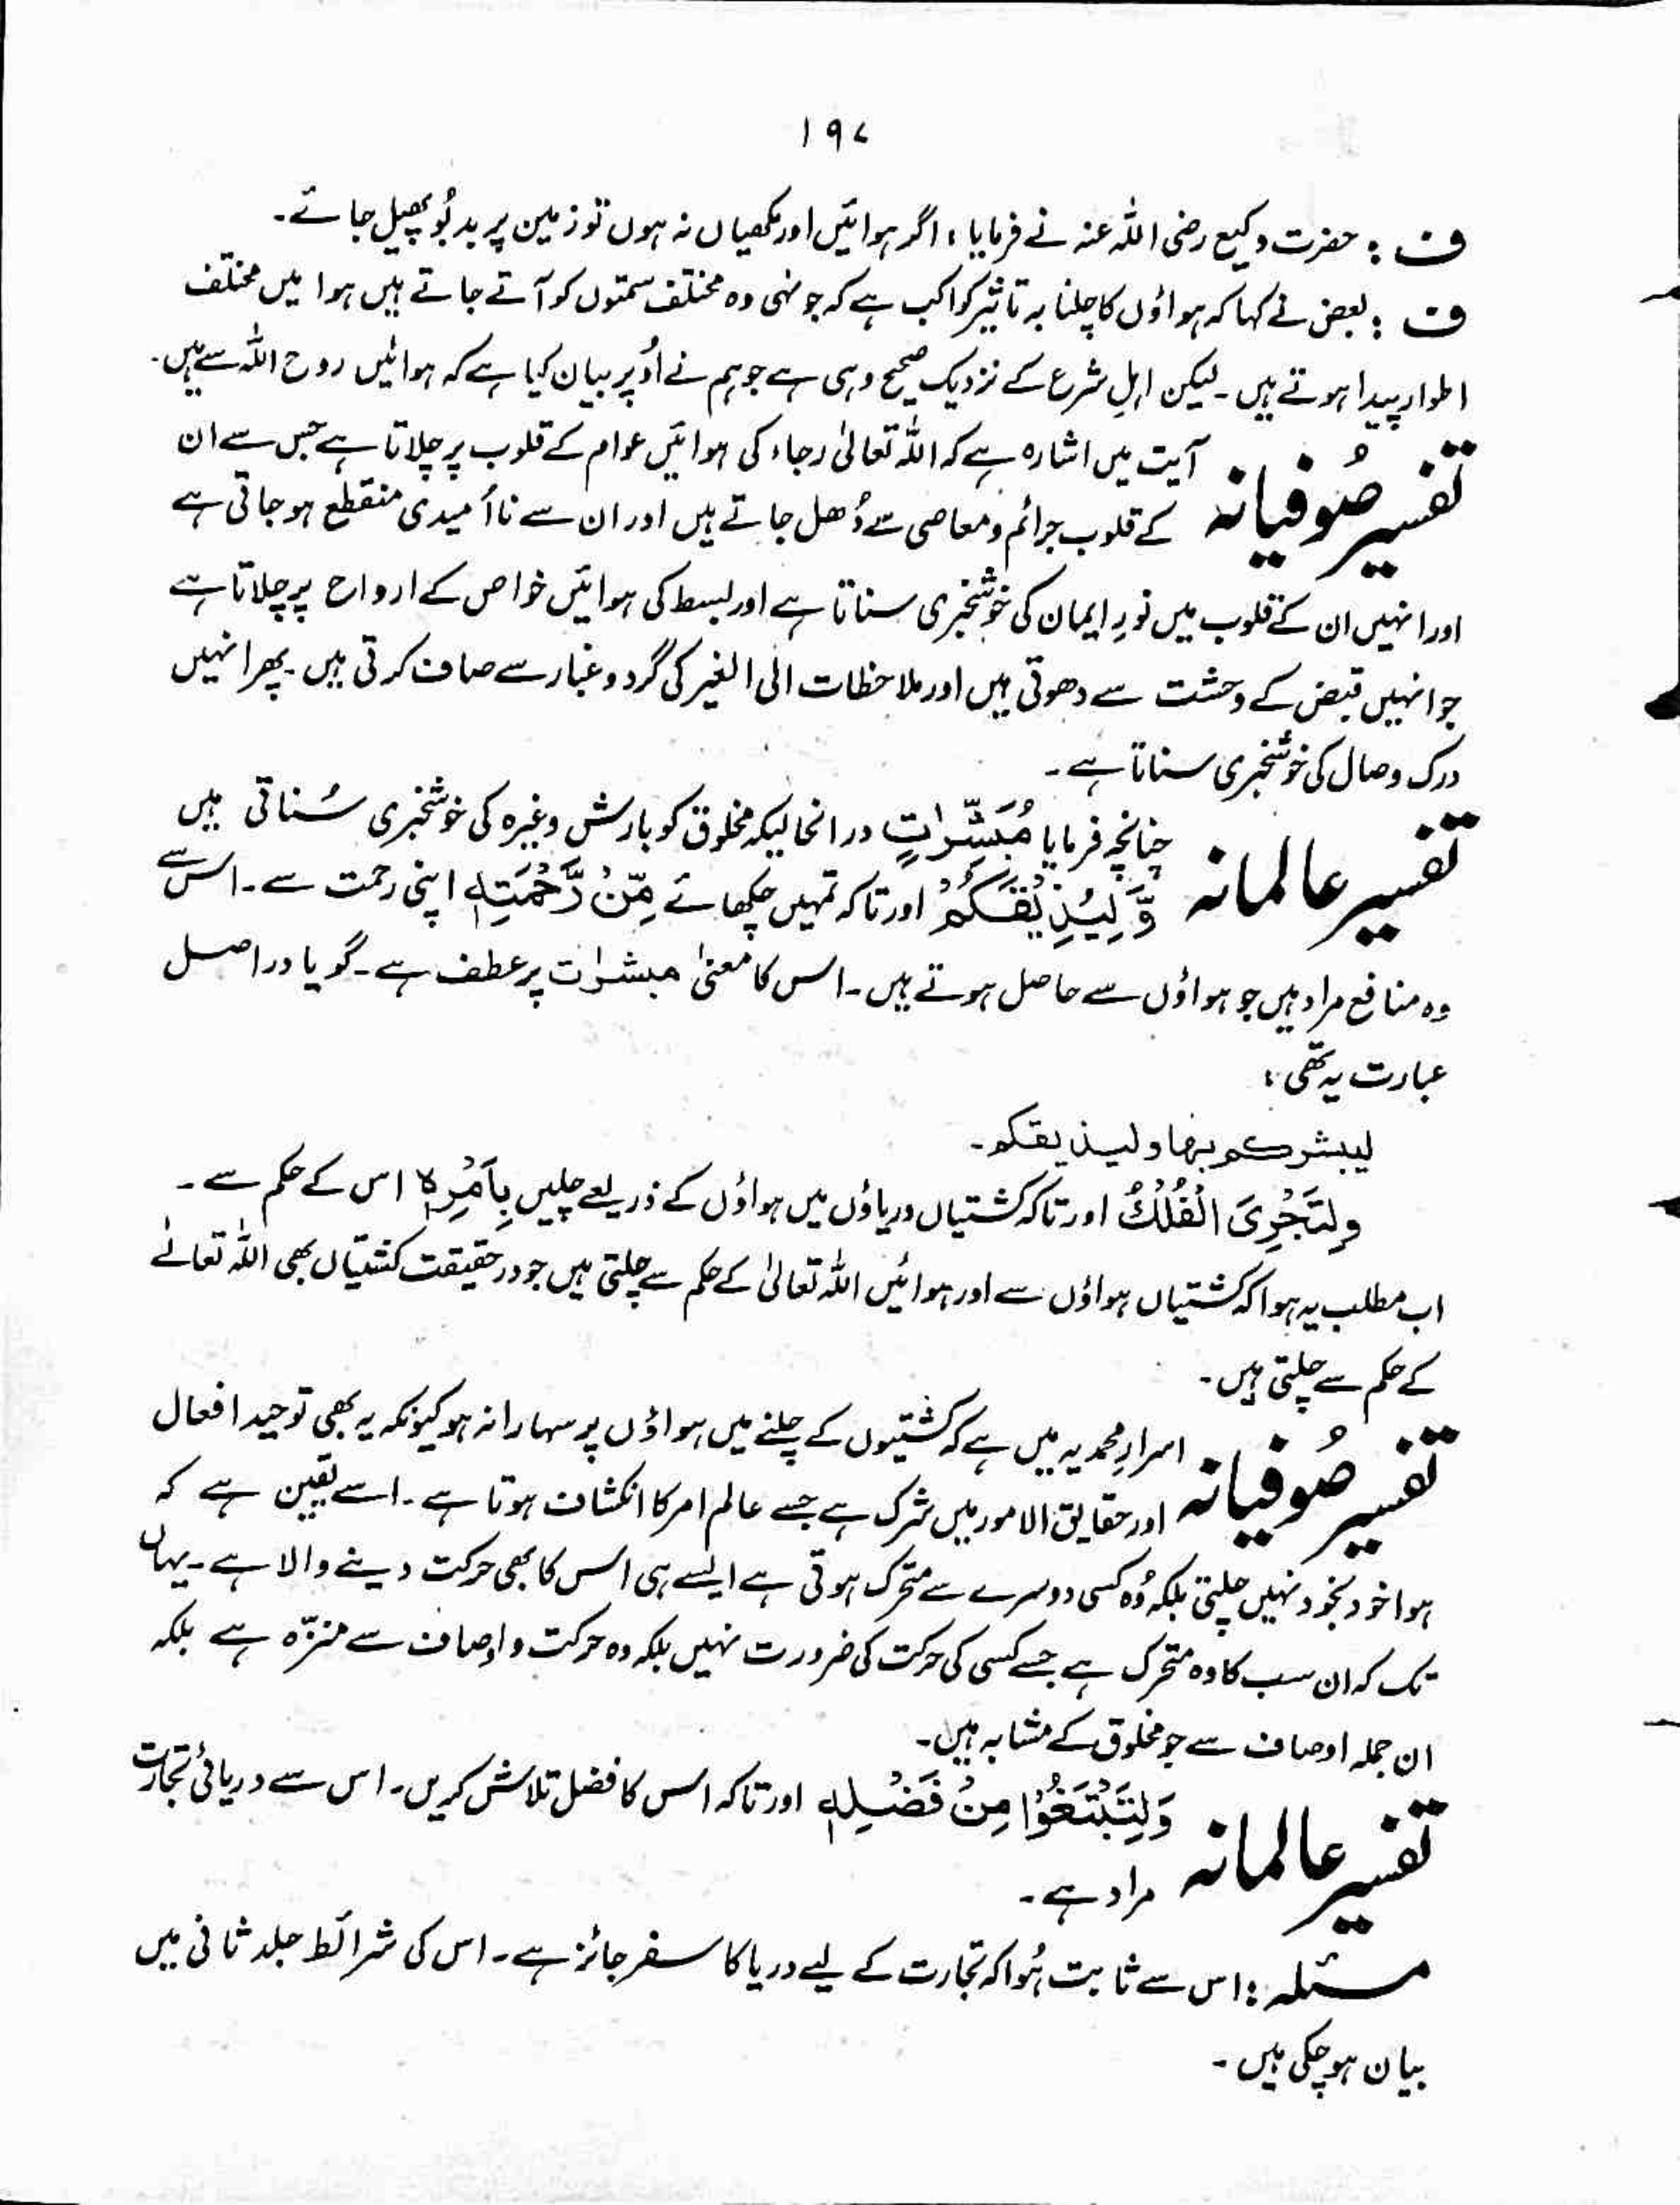 ۱۹۷
ف : حضرت وکیع رضی اللہ عنہ نے فرمایا ، اگر ہوائیں اور مکھیاں نہ ہوں تو زمین پر بدبُو پھیل جائے۔
ف : بعض نے کہا کہ ہواؤں کا چلنا بہ تاثیر کواکب ہے کہ جونہی وہ مختلف سمتوں کو آتے جاتے ہیں ہوا میں مختلف
اطوار پیدا ہوتے ہیں۔ لیکن اہلِ شرع کے نزدیک صحیح وہی ہے جو ہم نے اُوپر بیان کیا ہے کہ ہوائیں روح اللہ سے ہیں۔
تفسیر صُوفیانہ آیت میں اشارہ ہے کہ اللہ تعالیٰ رجاء کی ہوائیں عوام کے قلوب پر چلاتا ہے جس سے ان
کے قلوب جرائم و معاصی سے دُھل جاتے ہیں اور ان سے نااُمیدی منقطع ہو جاتی ہے
اور انہیں ان کے قلوب میں نورِ ایمان کی خوشخبری سناتا ہے اور بسط کی ہوائیں خواص کے ارواح پر چلاتا ہے
جو انہیں قبض کے وحشت سے دھوتی ہیں اور ملاحظات الی الغیر کی گرد و غبار سے صاف کرتی ہیں۔ پھر انہیں
درک وصال کی خوشخبری سناتا ہے۔
تفسیر عالمانہ چنانچہ فرمایا مُبَشِّرٰتٍ درانحالیکہ مخلوق کو بارش وغیرہ کی خوشخبری سُناتی ہیں
وَّ لِیُذِیْقَکُمْ اور تاکہ تمہیں چکھائے مِّنْ رَّحْمَتِہٖ اپنی رحمت سے۔ اس سے
وہ منافع مراد ہیں جو ہواؤں سے حاصل ہوتے ہیں۔ اس کا معنیٰ مبشرات پر عطف ہے۔ گویا دراصل
عبارت یہ تھی :
لیبشرکم بھا ولیذیقکم۔
وَلِتَجْرِیَ الْفُلْکُ اور تاکہ کشتیاں دریاؤں میں ہواؤں کے ذریعے چلیں بِاَمْرِہٖ اس کے حکم سے۔
اب مطلب یہ ہوا کہ کشتیاں ہواؤں سے اور ہوائیں اللہ تعالیٰ کے حکم سے چلتی ہیں جو درحقیقت کشتیاں بھی اللہ تعالےٰ
کے حکم سے چلتی ہیں۔
تفسیر صُوفیانہ اسرارِ محمدیہ میں ہے کہ کشتیوں کے چلنے میں ہواؤں پر سہارا نہ ہو کیونکہ یہ بھی توحید افعال
اور حقایق الامور میں شرک ہے جسے عالم امر کا انکشاف ہوتا ہے۔ اسے یقین ہے کہ
ہوا خود بخود نہیں چلتی بلکہ وُہ کسی دوسرے سے متحرک ہوتی ہے ایسے ہی اس کا بھی حرکت دینے والا ہے۔ یہاں
تک کہ ان سب کا وہ متحرک ہے جسے کسی کی حرکت کی ضرورت نہیں بلکہ وہ حرکت و اوصاف سے منزّہ ہے بلکہ
ان جملہ اوصاف سے جو مخلوق کے مشابہ ہیں۔
تفسیر عالمانہ وَلِتَبْتَغُوْا مِنْ فَضْلِہٖ اور تاکہ اس کا فضل تلاش کریں۔ اس سے دریائی تجارت
مراد ہے۔
مسئلہ : اس سے ثابت ہُوا کہ تجارت کے لیے دریا کا سفر جائز ہے۔ اس کی شرائط جلد ثانی میں
بیان ہو چکی ہیں۔